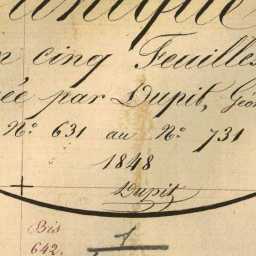 unique
n cinq Feuilles
ée par Dupit, Géo
N° 631 au N° 731
1848
Dupit
Bis
642.
1